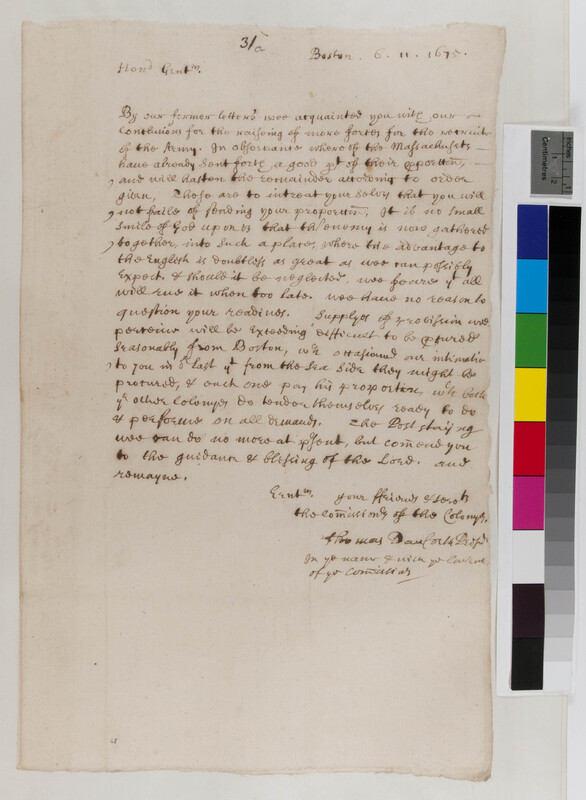 31a
Boston . 6 . 11 . 1675 .
Hon.d Gentm.
By our former letters wee acquainted you with our
Conclusions for the raising of more forces for the recruite
of the Army. In observance whereof the Massachusets
have already sent forth a good pt of their pportion,
and will hasten the remainder according to order
given, These are to intreat your selves that you will
not faile of sending your proportion, It is no small
smile of God upon us that th' enemy is now gathered
together, into such a place, where the advantage to
the English is doubtless as great as wee can possibly
Expect. & should it be neglected, wee feare yt all
will rue it when too late. wee have no reason to
question your readines. Supplyes of provision wee
perceive will be Exceeding difficult to be pcured
seasonably from Boston, wch occasiond our intimatio
to you in or Last yt from the Sea side they might be
procured, & each one pay his proportion, wch both
ye other Colonyes do tender themselves ready to do
& performe on all demands. The Post staying
wee can do no more at psent, but comend you
to the guidance & blessing of the Lord. and
remayne.
Gentm. your ffriends & servts
the Comissionrs of the Colonyes.
Thomas Danforth Presdt
In ye name & with ye Consent
of ye Comissionrs
Centimetres